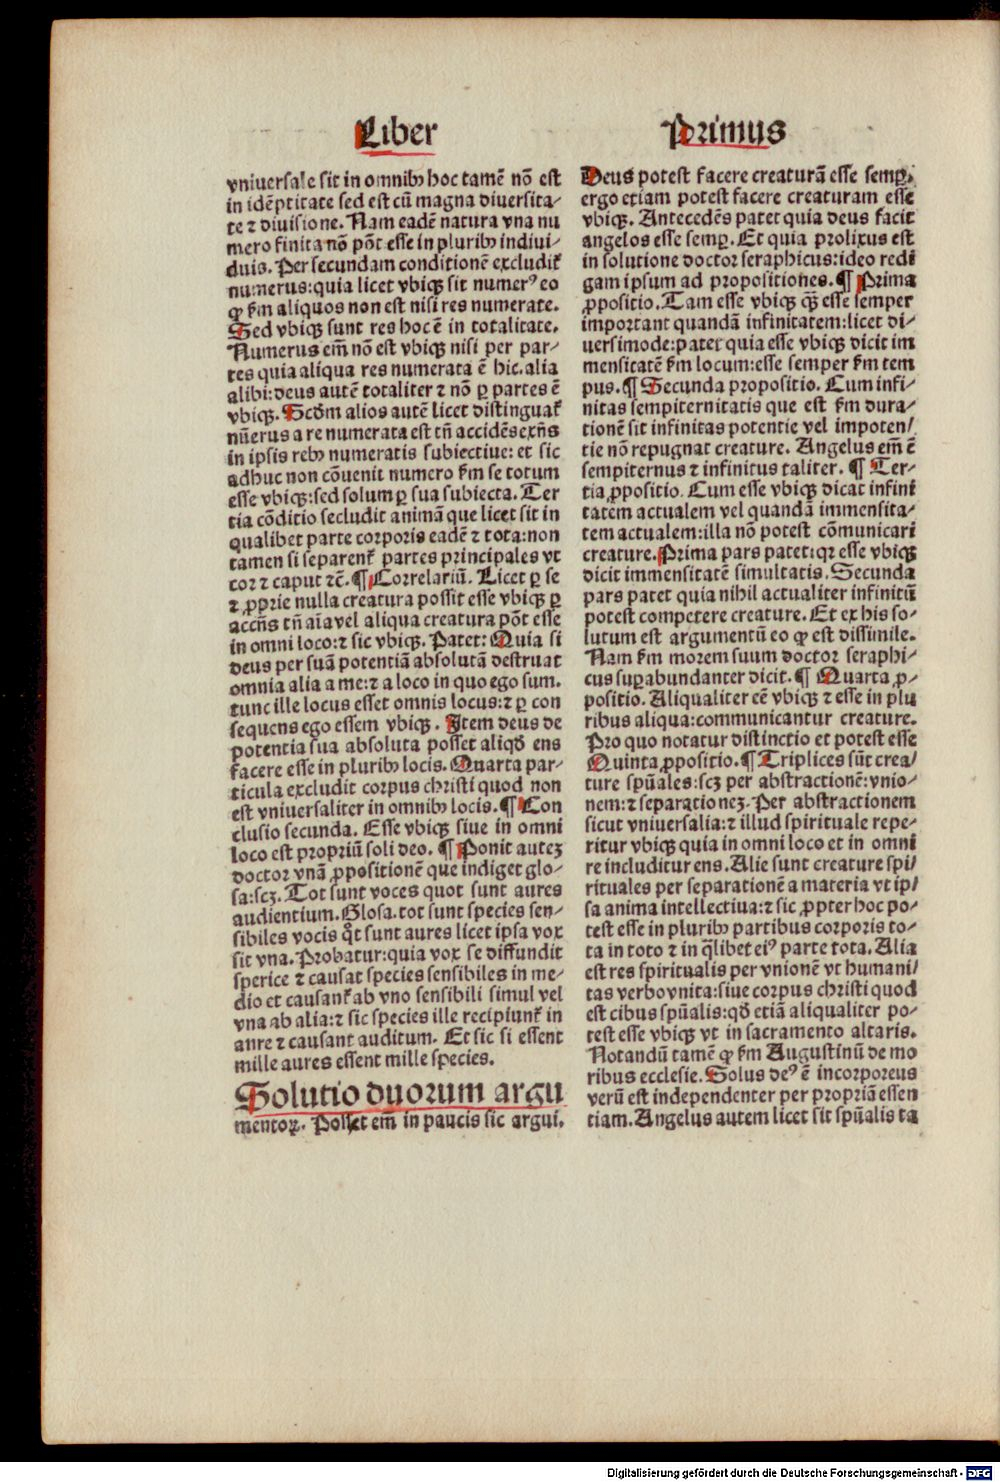 Liber Primus
vniuersale sit in omnibꝫ hoc tamē nō est
in idēptitate sed est cū magna diuersita⸗
te ⁊ diuisione. Nam eadē natura vna nu
mero finita nō pōt esse in pluribꝫ indiui⸗
duis. Per secundam conditionē excludit᷑
numerus: quia licet vbiqꝫ sit numerꝰ eo
ꝙ ẜm aliquos non est nisi res numerate.
Sed vbiqꝫ sunt res hoc ē in totalitate.
Numerus em̄ nō est vbiqꝫ nisi per par⸗
tes quia aliqua res numerata ē hic. alia
alibi: deus autē totaliter ⁊ nō ꝑ partes ē
vbiqꝫ. Scd̄m alios autē licet distinguat᷑
nūerus a re numerata est tn̄ accidēs exn̄s
in ipsis rebꝫ numeratis subiectiue: et sic
adhuc non cōuenit numero ẜm se totum
esse vbiqꝫ: sed solum ꝑ sua subiecta. Ter
tia cōditio secludit animā que licet sit in
qualibet parte corporis eadē ⁊ tota: non
tamen si separent᷑ partes principales vt
cor ⁊ caput ⁊c̄. ¶ Correlariū. Licet ꝑ se
⁊ ꝓprie nulla creatura possit esse vbiqꝫ ꝑ
accn̄s tn̄ aīa vel aliqua creatura pōt esse
in omni loco: ⁊ sic vbiqꝫ. Patet: Quia si
deus per suā potentiā absolutā destruat
omnia alia a me: ⁊ a loco in quo ego sum.
tunc ille locus esset omnis locus: ⁊ ꝑ con
sequens ego essem vbiqꝫ. Item deus de
potentia sua absoluta posset aliqd̄ ens
facere esse in pluribꝫ locis. Quarta par⸗
ticula excludit corpus christi quod non
est vniuersaliter in omnibꝫ locis. ¶ Con
clusio secunda. Esse vbiqꝫ siue in omni
loco est propriū soli deo. ¶ Ponit autez
doctor vnā ꝓpositionē que indiget glo⸗
sa: scꝫ. Tot sunt voces quot sunt aures
audientium. Glosa. tot sunt species sen⸗
sibiles vocis qͦt sunt aures licet ipsa vox
sit vna. Probatur: quia vox se diffundit
sperice ⁊ causat species sensibiles in me⸗
dio et causant᷑ ab vno sensibili simul vel
vna ab alia: ⁊ sic species ille recipiunt᷑ in
aure ⁊ causant auditum. Et sic si essent
mille aures essent mille species.
Solutio duorum argu
mentoꝝ. Posset em̄ in paucis sic argui.
Deus potest facere creaturā esse semꝑ.
ergo etiam potest facere creaturam esse
vbiqꝫ. Antecedēs patet quia deus facit
angelos esse semꝑ. Et quia prolixus est
in solutione doctor seraphicus: ideo redi
gam ipsum ad propositiones. ¶ Prima
ꝓpositio. Tam esse vbiqꝫ qꝫ̄ esse semper
important quandā infinitatem: licet di⸗
uersimode: patet quia esse vbiqꝫ dicit im
mensitatē ẜm locum: esse semper ẜm tem
pus. ¶ Secunda propositio. Cum infi⸗
nitas sempiternitatis que est ẜm dura⸗
tionē sit infinitas potentie vel impoten⸗
tie nō repugnat creature. Angelus em̄ ē
sempiternus ⁊ infinitus taliter. ¶ Ter⸗
tia ꝓpositio. Cum esse vbiqꝫ dicat infini
tatem actualem vel quandā immensita⸗
tem actualem: illa nō potest cōmunicari
creature. Prima pars patet: qꝛ esse vbiqꝫ
dicit immensitatē simultatis. Secunda
pars patet quia nihil actualiter infinitū
potest competere creature. Et ex his so⸗
lutum est argumentū eo ꝙ est dissimile.
Nam ẜm morem suum doctor seraphi⸗
cus suꝑabundanter dicit. ¶ Quarta ꝓ⸗
positio. Aliqualiter eē vbiqꝫ ⁊ esse in plu
ribus aliqua: communicantur creature.
Pro quo notatur distinctio et potest esse
Quinta ꝓpositio. ¶ Triplices sūt crea⸗
ture spūales: scꝫ per abstractionē: vnio⸗
nem: ⁊ separationeꝫ. Per abstractionem
sicut vniuersalia: ⁊ illud spirituale repe⸗
ritur vbiqꝫ quia in omni loco et in omni
re includitur ens. Alie sunt creature spi⸗
rituales per separationē a materia vt ip⸗
sa anima intellectiua: ⁊ sic ꝓpter hoc po⸗
test esse in pluribꝫ partibus corporis to⸗
ta in toto ⁊ in q̄libet eiꝰ parte tota. Alia
est res spiritualis per vnionē vt humani⸗
tas verbo vnita: siue corpus christi quod
est cibus spūalis: qd̄ etiā aliqualiter po⸗
test esse vbiqꝫ vt in sacramento altaris.
Notandū tamē ꝙ ẜm Augustinū de mo
ribus ecclesie. Solus deꝰ ē incorporeus
verū est independenter per propriā essen
tiam. Angelus autem licet sit spūalis ta
Digitalisierung gefördert durch die Deutsche Forschungsgemeinschaft - DFG